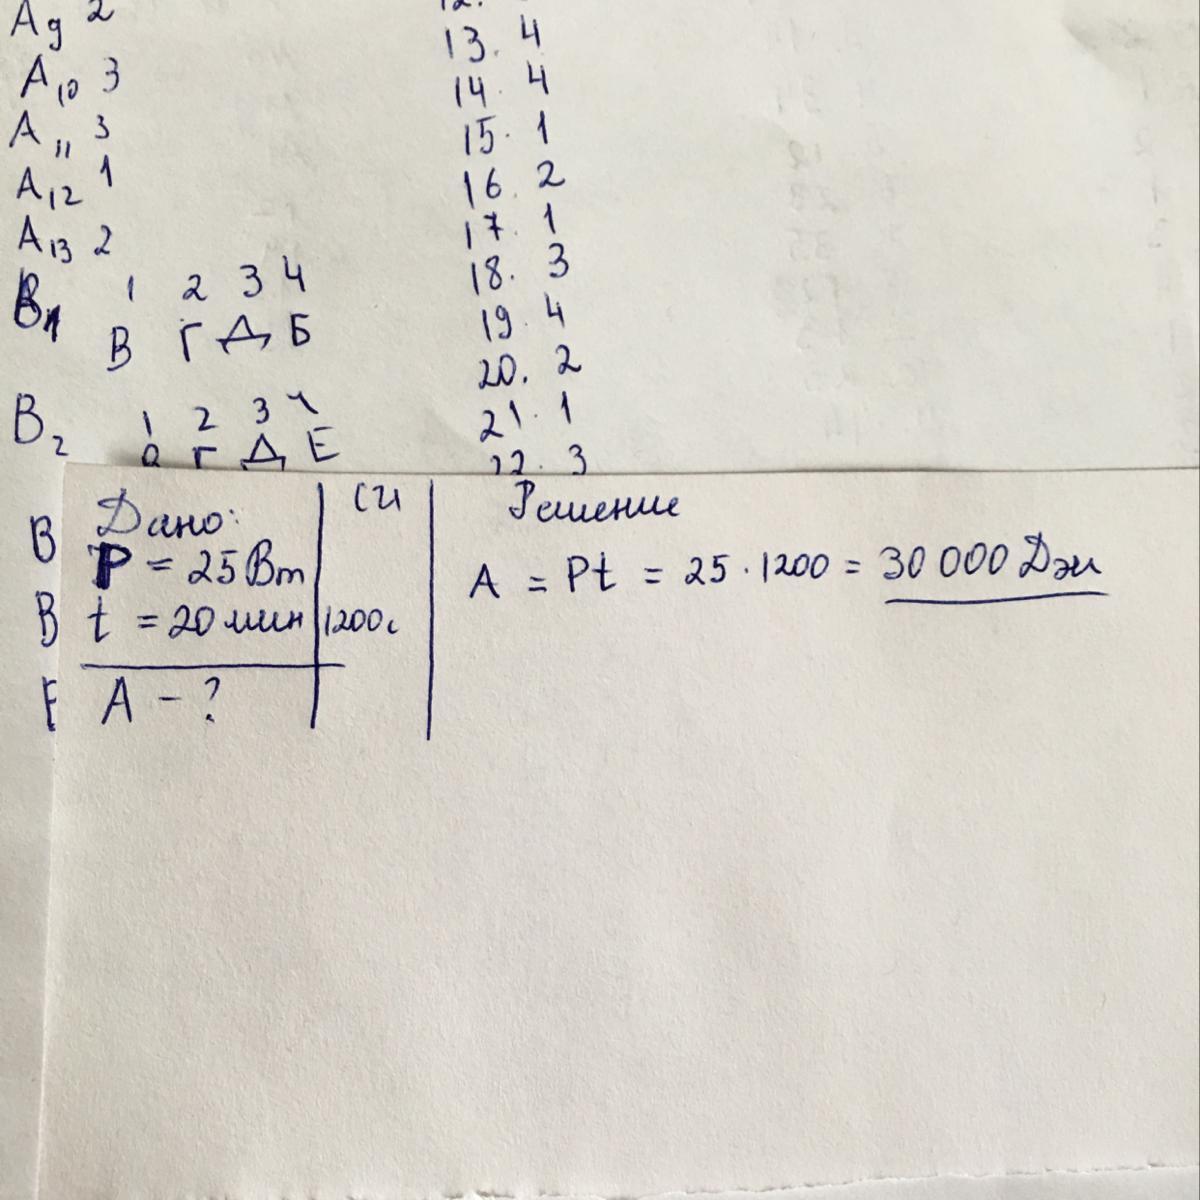 A9 2
A10 3
A11 3
A12 1
A13 2
B1 1 2 3 4
В Г Д Б
B2 1 2 3 4
Г Д Е
12.
13. 4
14. 4
15. 1
16. 2
17. 1
18. 3
19. 4
20. 2
21. 1
22. 3
В
В
Дано:
P = 25 Вт
t = 20 мин
A - ?
СИ
1200 с
Решение
A = Pt = 25 · 1200 = 30 000 Дж